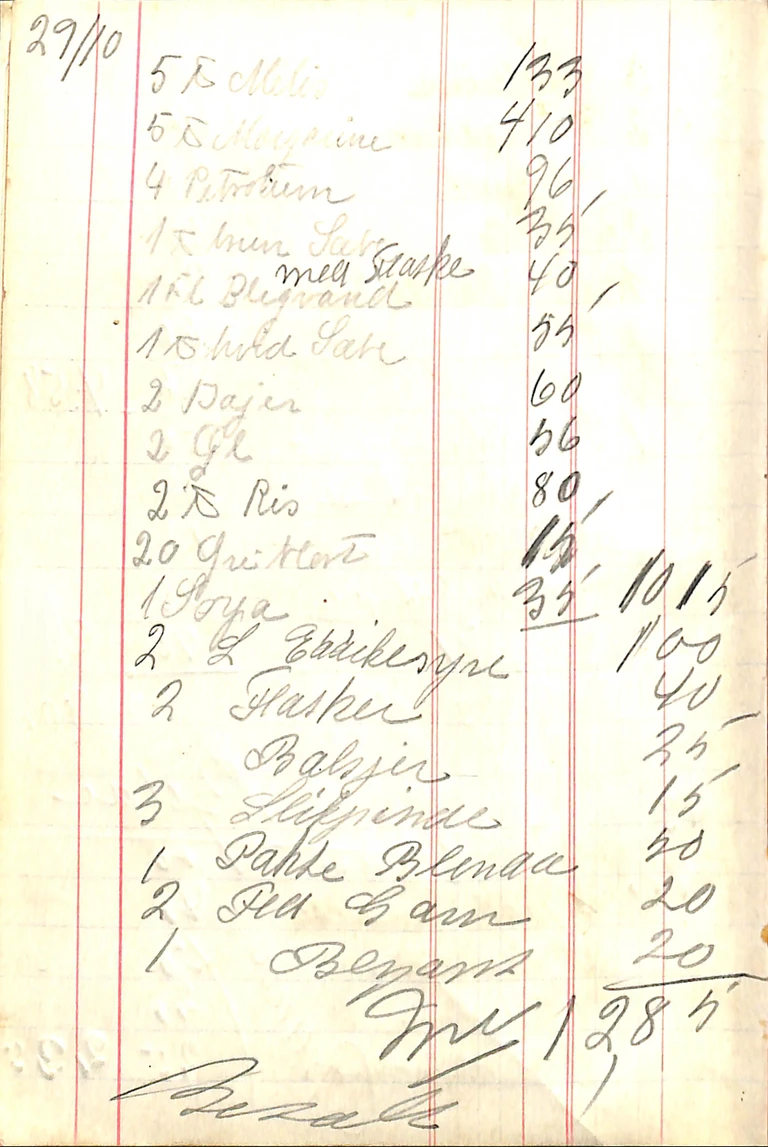 29/10
5 ℔ Melis 133
5 ℔ Margarine 410
4 Petroleum 96
1 ℔ brun Sæbe 35
med Flaske
1 Fl Blegvand 40
1 ℔ hvid Sæbe 55
2 Bajer 60
2 Øl 56
2 ℔ Ris 80
20 15
1 Soya 35 1015
2 L Eddikesyre 100
2 Flasker 40
Balsjer 25
3 Slikpinde 15
1 Pakke Blenda 50
2 Fed Garn 20
1 20
1285
Betalt